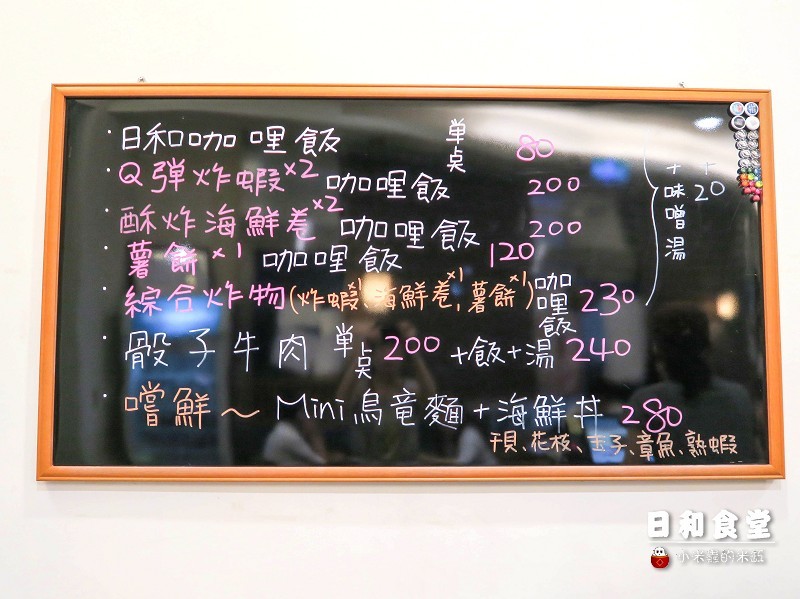 ·日和咖哩飯 單点 80
·Q弹炸蝦x2 咖哩飯 200
·酥炸海鮮卷x2 咖哩飯 200
·薯餅x1 咖哩飯 120
·綜合炸物(炸蝦x1、海鮮卷x1、薯餅x1)咖哩飯 230
+味噌湯
+20
·骰子牛肉 單点 200 +飯+湯 240
·嚐鮮~Mini烏竜麵+海鮮丼 280
干貝、花枝、玉子、章魚、熟蝦
日和食堂
小米蟲的米缸